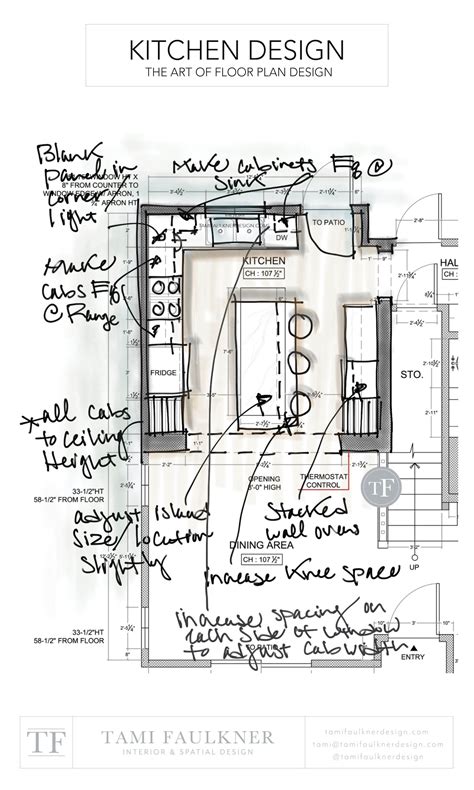 KITCHEN DESIGN
THE ART OF FLOOR PLAN DESIGN
Blank
panel in
corner
light
8" FROM COUNTER TO
Make cabinets Eq @
Sink
TO PATIO
DW
KITCHEN
CH : 107 ½"
Make
cabs Eq
@ Range
FRIDGE
7'-6"
2'-8"
HAL
CH
STO.
*all cabs
to ceiling
Height
33-1/2"HT
58-1/2" FROM FLOOR
2'-2"
OPENING
8'-0" HIGH
THERMOSTAT
CONTROL
TF
adjust Island
Size/location
Slightly
Stacked
wall ovens
DINING AREA
CH : 107 ½"
increase knee space
UP
increase spacing on
each side of window
to adjust cab width
TO PATIO
33-1/2"HT
58-1/2" FROM FLOOR
ENTRY
TF
TAMI FAULKNER
INTERIOR & SPATIAL DESIGN
tamifaulknerdesign.com
tami@tamifaulknerdesign.com
@tamifaulknerdesign